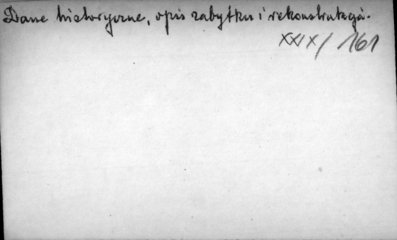 Dane historyczne, opis zabytku i rekonstrukcja.
XXIX/161